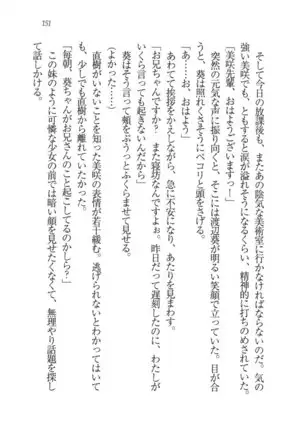 151
そして今日の放課後も、またあの陰気な美術室に行かなければならないのだ。気の
強い美咲でも、ともすると涙が溢れそうになるくらい、精神的に打ちのめされていた。
「美咲先輩、おはようございますっ！」
突然の元気な声に振り向くと、そこには渡辺葵が明るい笑顔で立っていた。目が合
うと、葵はそれこそ頭が膝につきそうにペコリと頭をさげる。
「あ……お、おはよう」
あわてて挨拶をかえしながら、急に不安になり、あたりを見まわす。
「お兄ちゃんですか？　また寝坊なんですよぉ。昨日だって遅刻したのに、わたしが
いくら言っても起きないんだから」
葵はそう言って頬をぷうっとふくらませて見せる。
（よかった……）
直樹がいないことを知った美咲の表情が若干緩む。逃げられないとわかってはいて
も、少しでも直樹から離れていたかった。
「毎朝、葵ちゃんがお兄さんのこと起こしてるのかしら？」
この妹のように可憐な少女の前では暗い顔を見せたくなくて、無理やり話題を探し
て話しかける。